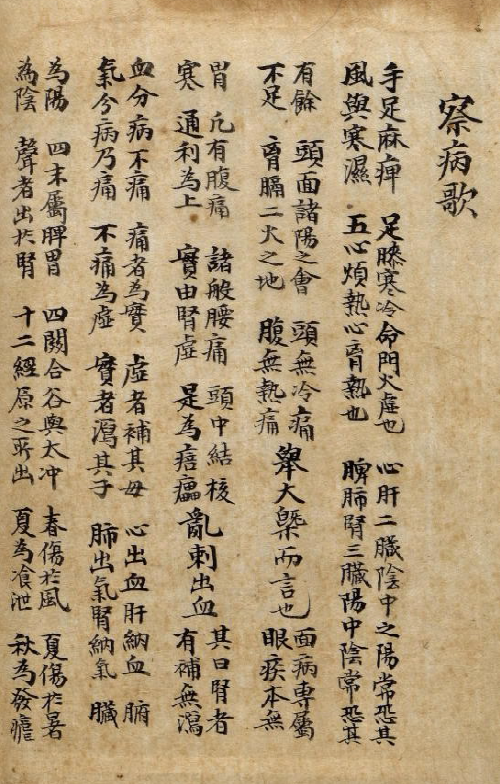 察病歌
手足麻痺 足膝寒冷命門火虛也 心肝二臟陰中之陽常恐其
風與寒濕 五心煩熱心肓熱也 脾肺腎三臟陽中陰常恐其
有餘 頭面諸陽之會 頭無冷痛 擧大槩而言也 面病專屬
不足 肓膈二火之地 腹無熱痛 眼疾本無
胃 凡有腹痛 諸般腰痛 頭中結核 亂刺出血 其曰腎者
寒 通利為上 實由腎虛 是為 有補無瀉
血分病不痛 痛者為實 虛者補其母 心出血肝納血 腑
氣兮病乃痛 不痛為虛 實者瀉其子 肺出氣腎納氣 臟
為陽 四末屬脾胃 四關合谷與太冲 春傷於風 夏傷於暑
為陰 聲者出於腎 十二經原之所出 夏為飱泄 秋為發瘧